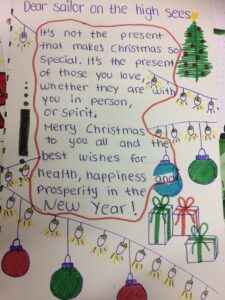 Dear sailor on the high sees
It's not the present
that makes Christmas so
special. It's the present
of those you love,
whether they are with
you in person,
or spirit.
Merry Christmas
to you all and the
best wishes for
health, happiness and
prosperity in the
New Year!